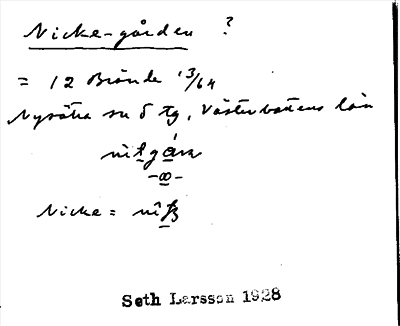 Nicke-gården ?
= 12 Brände 13/64
Nysätra sn 5 tg, Västerbottens län
Nicke =
Seth Larsson 1928